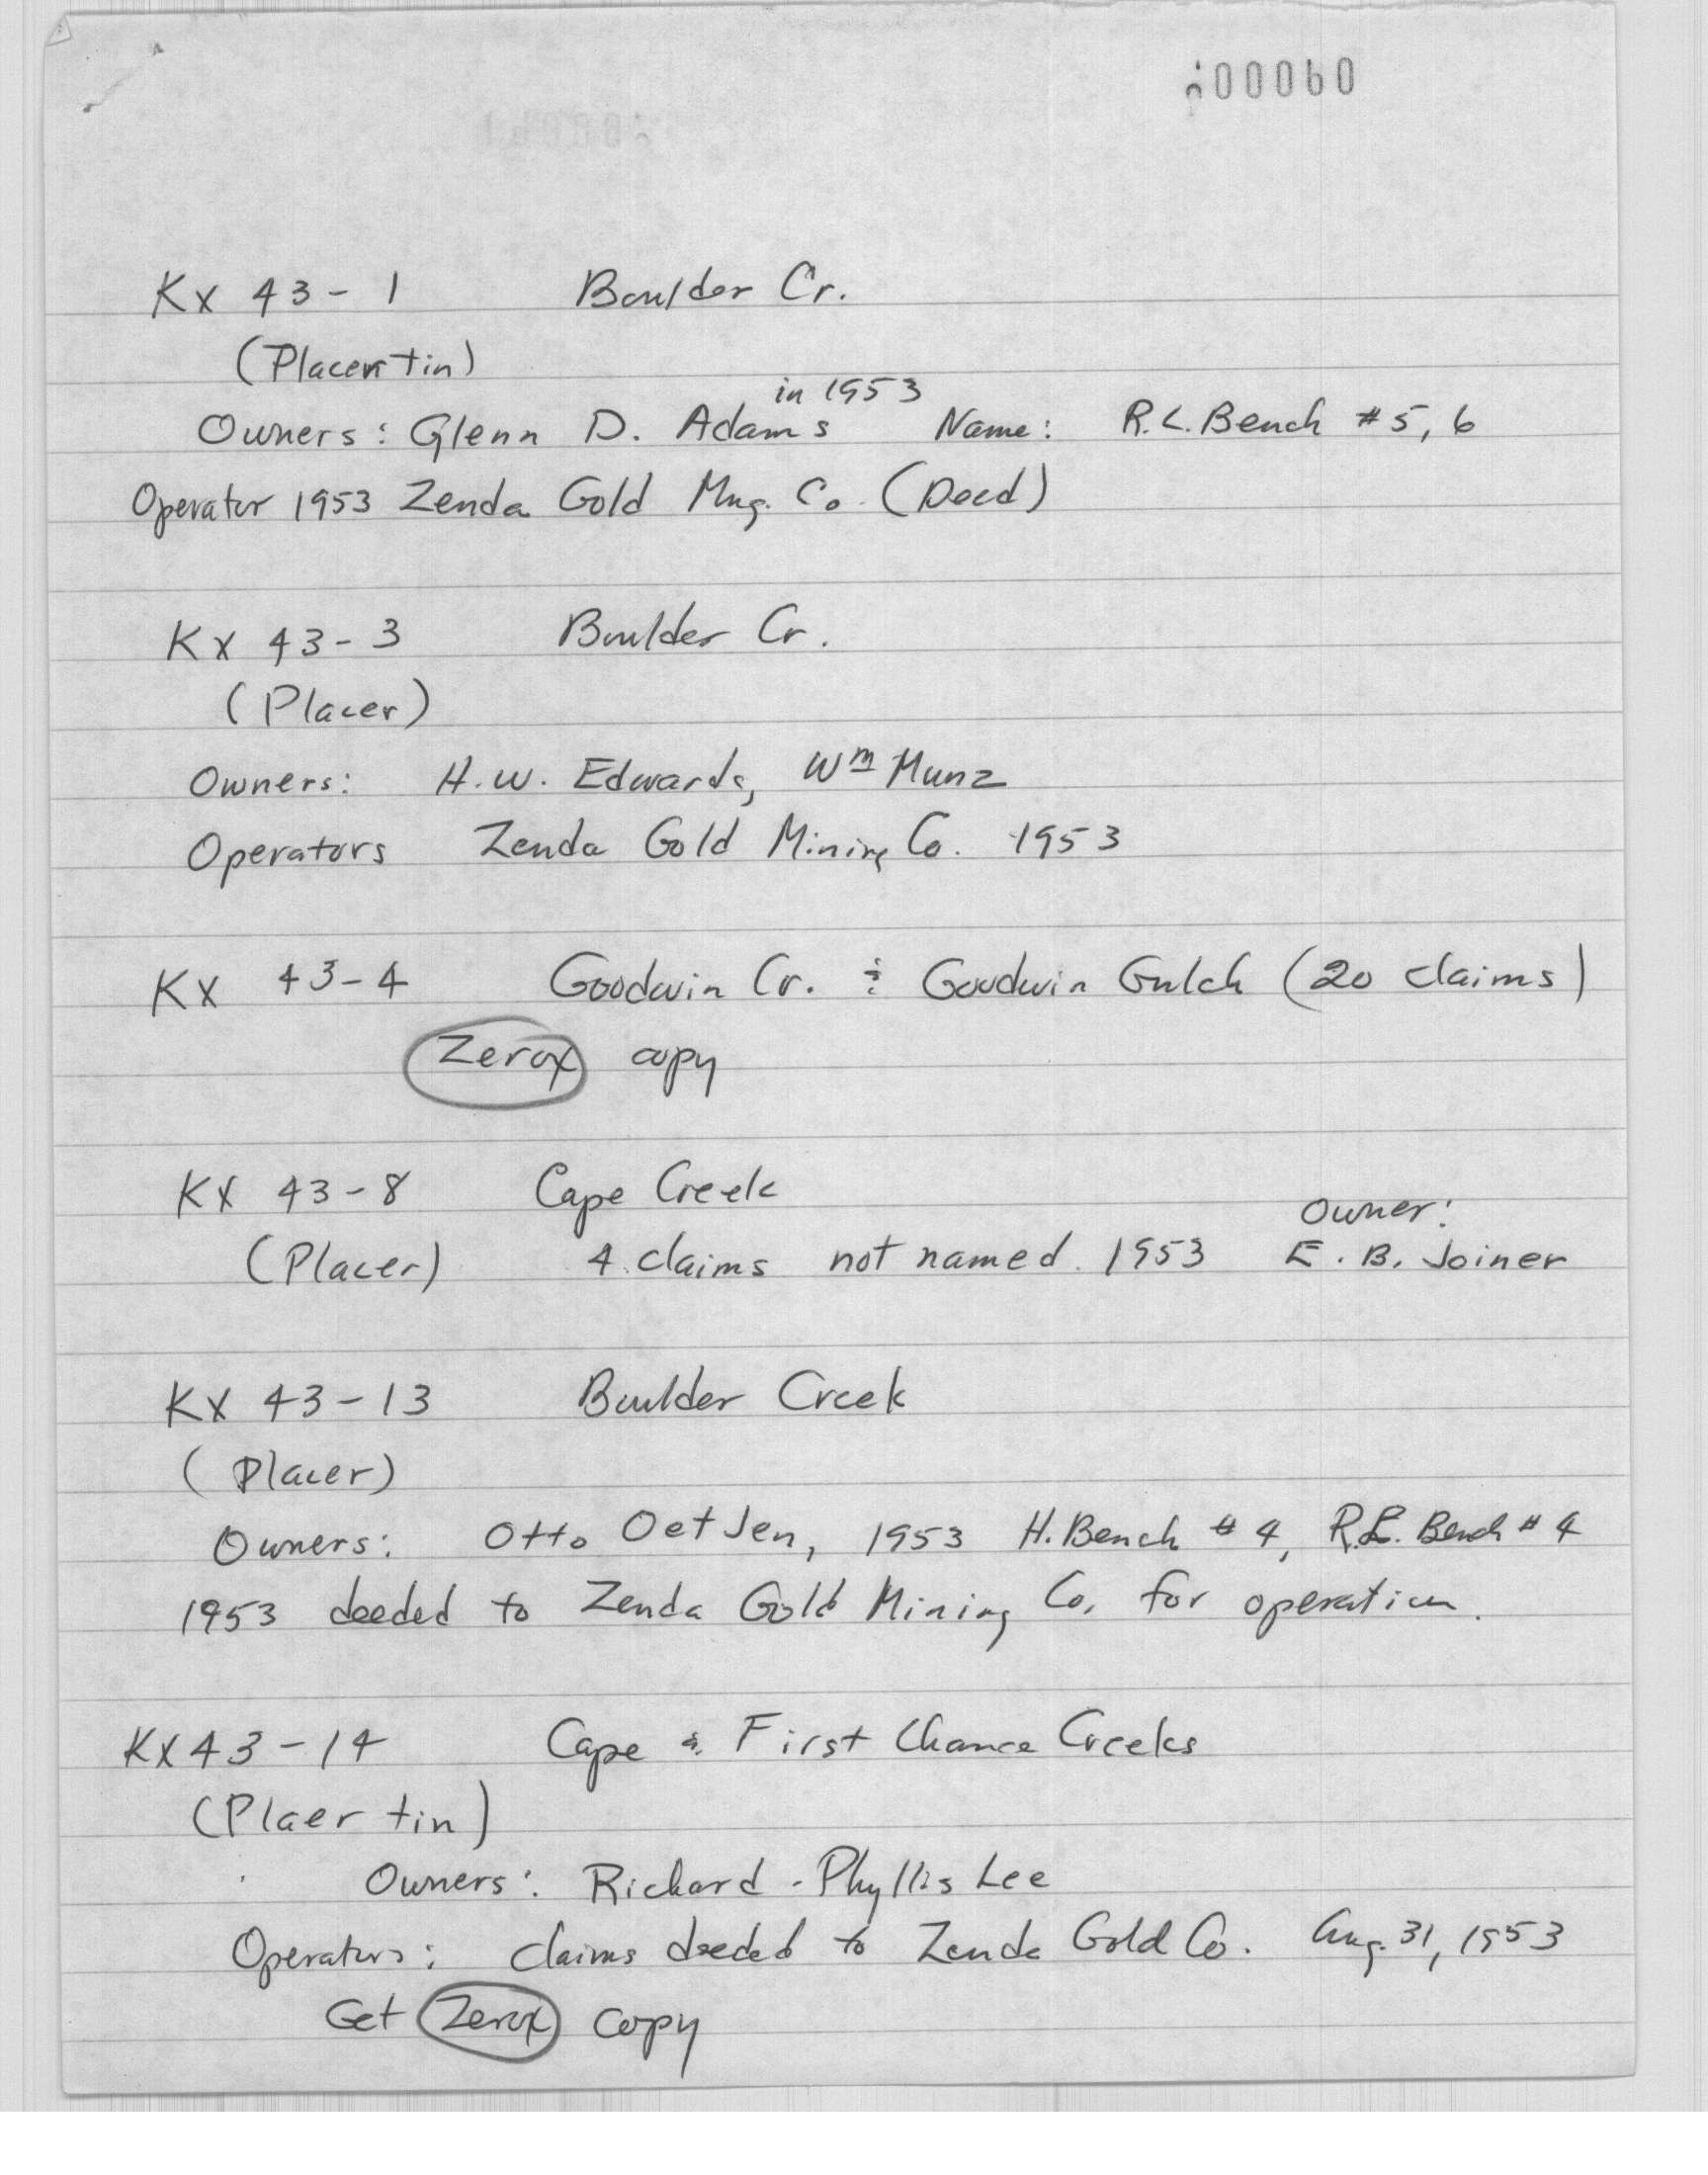 00060
Kx 43-1 Boulder Cr.
(Placer tin)
in 1953
Owners: Glenn D. Adams Name: R.L. Bench #5, 6
Operator 1953 Zenda Gold Mng. Co. (Deed)
Kx 43-3 Boulder Cr.
(Placer)
Owners: H.W. Edwards, Wm Munz
Operators Zenda Gold Mining Co. 1953
Kx 43-4 Goodwin Cr. & Goodwin Gulch (20 claims)
Zerox copy
Kx 43-8 Cape Creek
Owner:
(Placer) 4 claims not named 1953 E. B. Joiner
Kx 43-13 Boulder Creek
(Placer)
Owners: Otto OetJen, 1953 H. Bench #4, R.L. Bench #4
1953 deeded to Zenda Gold Mining Co. for operation.
Kx 43-14 Cape & First Chance Creeks
(Plaer tin)
Owners: Richard - Phyllis Lee
Operators: Claims deeded to Zenda Gold Co. Aug. 31, 1953
Get Zerox copy